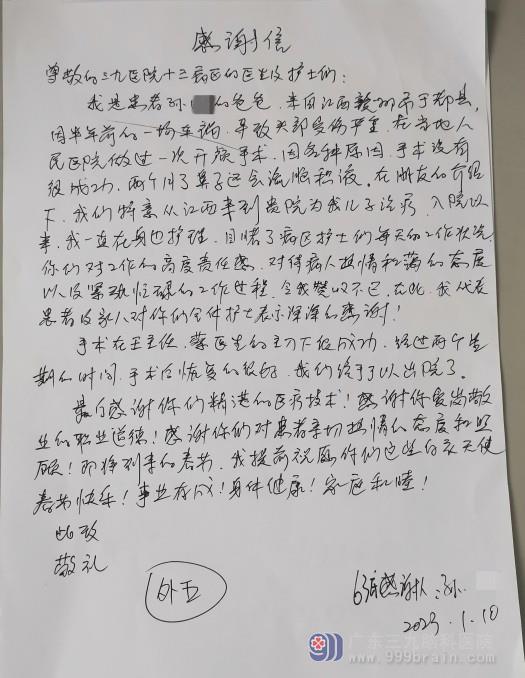 感谢信
尊敬的三九医院十三病区的医生及护士们:
我是患者孙 的爸爸,来自江西赣州市于都县,
因半年前的一场车祸,导致头部受伤严重,在当地人
民医院做过一次开颅手术,因各种原因,手术没有
很成功,两个月了鼻子还会流脑积液。在朋友的介绍
下,我们特意从江西来到贵院为我儿子治疗,入院以
来,我一直在身边护理,目睹了病区护士们每天的工作状况,
你们对工作的高度责任感,对待病人热情和蔼的态度
以及紧张忙碌的工作过程,令我赞叹不已,在此,我代表
患者及家人对你们全体护士表示深深的感谢!
手术在王主任、蒙医生的主刀下很成功,经过两个星
期的时间,手术后恢复的很好,我们终于可以出院了。
最后感谢你们精湛的医疗技术!感谢你们爱岗敬
业的职业道德!感谢你们对患者亲切热情的态度和照
顾!即将到来的春节,我提前祝愿你们这些白衣天使
春节快乐!事业有成!身体健康!家庭和睦!
此致
敬礼
外五
感谢人:孙
2023.1.10
广东三九脑科医院
www.999brain.com